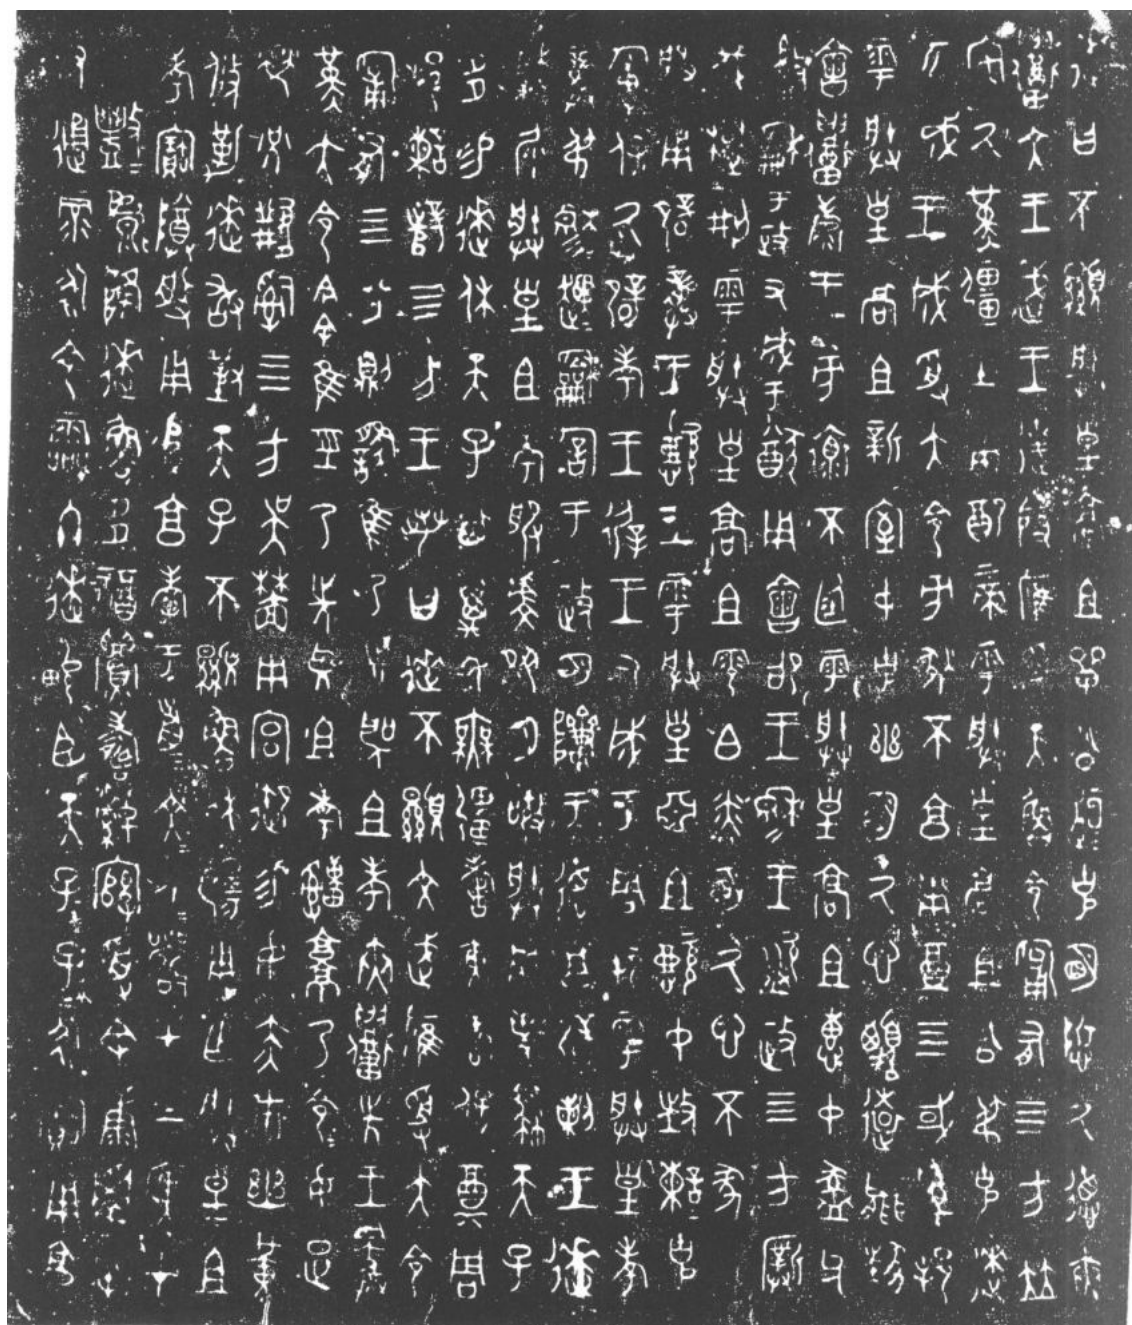 逨曰不顯朕皇高且單公桓桓克明悊厥德夾
召文王武王達殷膺受天魯令匍有四方竝
宅厥堇疆土用配上帝雩朕皇高且公叔克逨
匹成王成受大令方狄不享用奠四或萬邦
雩朕皇高且新室中克幽明厥心柔遠能釱
會召康王方懷不廷雩朕皇高且惠中盠父
盭龢于政有成于猷用會卲王穆王盜政四方撲
伐楚荊雩朕皇高且零白粦明厥心不㒸
服用辟龏王懿王雩朕皇亞且懿中致諫諫克
匍保厥辟考王夷王有成于周邦雩朕皇考
龏叔穆穆趩趩龢詢于政明陵于德享辟剌王逨
肇纘朕皇且考服虔夙夕敬朕死事肆天子
多易逨休天子其萬年無疆耆黃耇保奠周
邦諫辥四方王若曰逨不顯文武膺受大令
匍有四方則繇隹乃先聖且考夾召先王爵
堇大令今余隹經乃先聖且考申就乃令令女疋
榮兌兼司四方吳林用宮御易女赤巿幽黃
攸勒逨敢對天子不顯魯休揚用乍朕皇且
考寶尊盤用追享孝于前文人前文人嚴在上廙在下
豐豐彪彪降逨魯多福眉壽綽綰受余康虞屯又
通彔永令霝冬逨畯臣天子子孫孫永寶用享